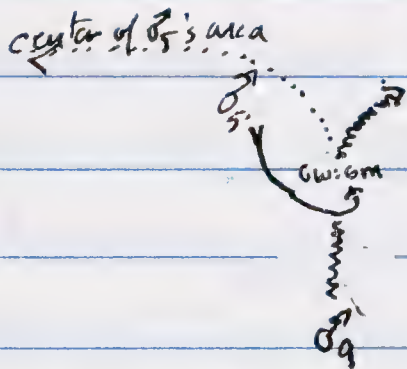 center of ♂5's area
♂5
GW:GM
♂9